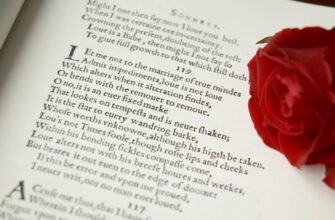 SONNETS.
Might I not then say now I loue you best,
When I was certaine ore in-certainty,
Crowning the present, doubting of the rest:
Loue is a Babe, then might I not say so
To giue full growth to that which still doth
119
LEt me not to the marriage of true mindes
Admit impediments, loue is not loue
Which alters when it alteration findes,
Or bends with the remouer to remoue.
O no, it is an euer fixed marke
That lookes on tempests and is neuer shaken;
It is the star to euery wandring barke,
Whose worths vnknowne, although his higth be taken.
Lou's not Times foole, though rosie lips and cheeks
Within his bending sickles compasse come,
Loue alters not with his breefe houres and weekes,
But beares it out euen to the edge of doome:
If this be error and vpon me proued,
I neuer writ, nor no man euer loued.
ACcuse me thus, that I haue
Wherein I should